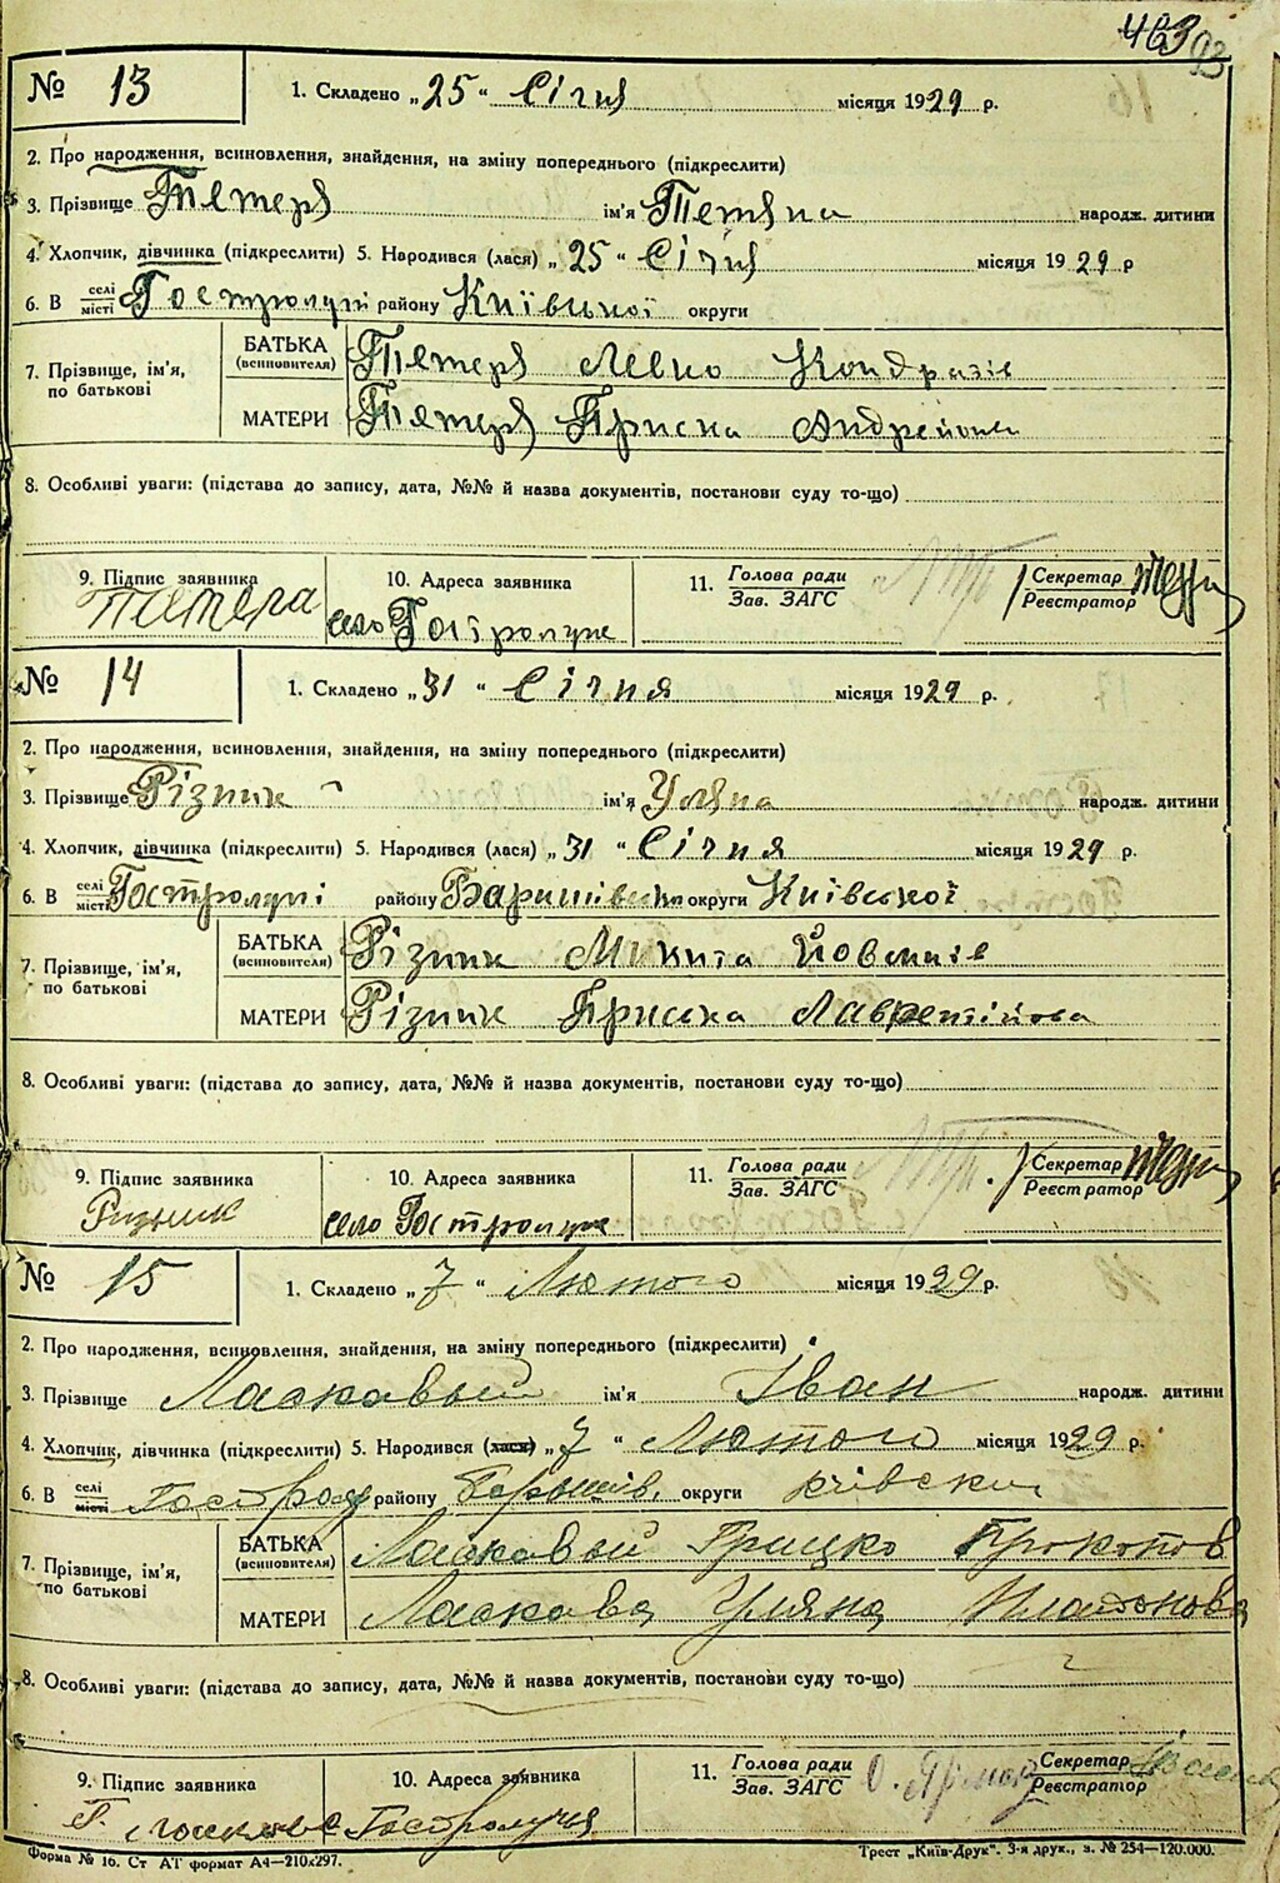 463 93
№ 13 1. Складено „25“ Січня місяця 1929 р.
2. Про народження, всиновлення, знайдення, на зміну попереднього (підкреслити)
3. Прізвище Тетеря ім'я Тетяна народж. дитини
4. Хлопчик, дівчинка (підкреслити) 5. Народився (лася) „25“ Січня місяця 1929 р
6. В селі місті Гостролуці району Київської округи
7. Прізвище, ім'я, по батькові
БАТЬКА (всиновителя) Тетеря Левко Кондратів
МАТЕРИ Тетеря Приська Андрейова
8. Особливі уваги: (підстава до запису, дата, №№ й назва документів, постанови суду то-що)
9. Підпис заявника 10. Адреса заявника 11. Голова ради Зав. ЗАГС Секретар Реєстратор
Тетеря село Гостролуче
№ 14 1. Складено „31“ Січня місяця 1929 р.
2. Про народження, всиновлення, знайдення, на зміну попереднього (підкреслити)
3. Прізвище Різник ім'я Уляна народж. дитини
4. Хлопчик, дівчинка (підкреслити) 5. Народився (лася) „31“ Січня місяця 1929 р.
6. В селі місті Гостролуці району Баришівськ округи Київської
7. Прізвище, ім'я, по батькові
БАТЬКА (всиновителя) Різник Микита
МАТЕРИ Різник Приська Лаврентійова
8. Особливі уваги: (підстава до запису, дата, №№ й назва документів, постанови суду то-що)
9. Підпис заявника 10. Адреса заявника 11. Голова ради Зав. ЗАГС Секретар Реєстратор
Ризник село Гостролуче
№ 15 1. Складено „7“ Лютого місяця 1929 р.
2. Про народження, всиновлення, знайдення, на зміну попереднього (підкреслити)
3. Прізвище Ласкавый ім'я Іван народж. дитини
4. Хлопчик, дівчинка (підкреслити) 5. Народився (лася) „7“ Лютого місяця 1929 р.
6. В селі місті району округи
7. Прізвище, ім'я, по батькові
БАТЬКА (всиновителя) Ласкавый Грицко Прокопов
МАТЕРИ Ласкава Уляна Платонова
8. Особливі уваги: (підстава до запису, дата, №№ й назва документів, постанови суду то-що)
9. Підпис заявника 10. Адреса заявника 11. Голова ради Зав. ЗАГС Секретар Реєстратор
Г. Гостролучя
Форма № 16. Ст АТ формат А4—210x297. Трест „Київ-Друк“. 3-я друк., з. № 254—120.000.